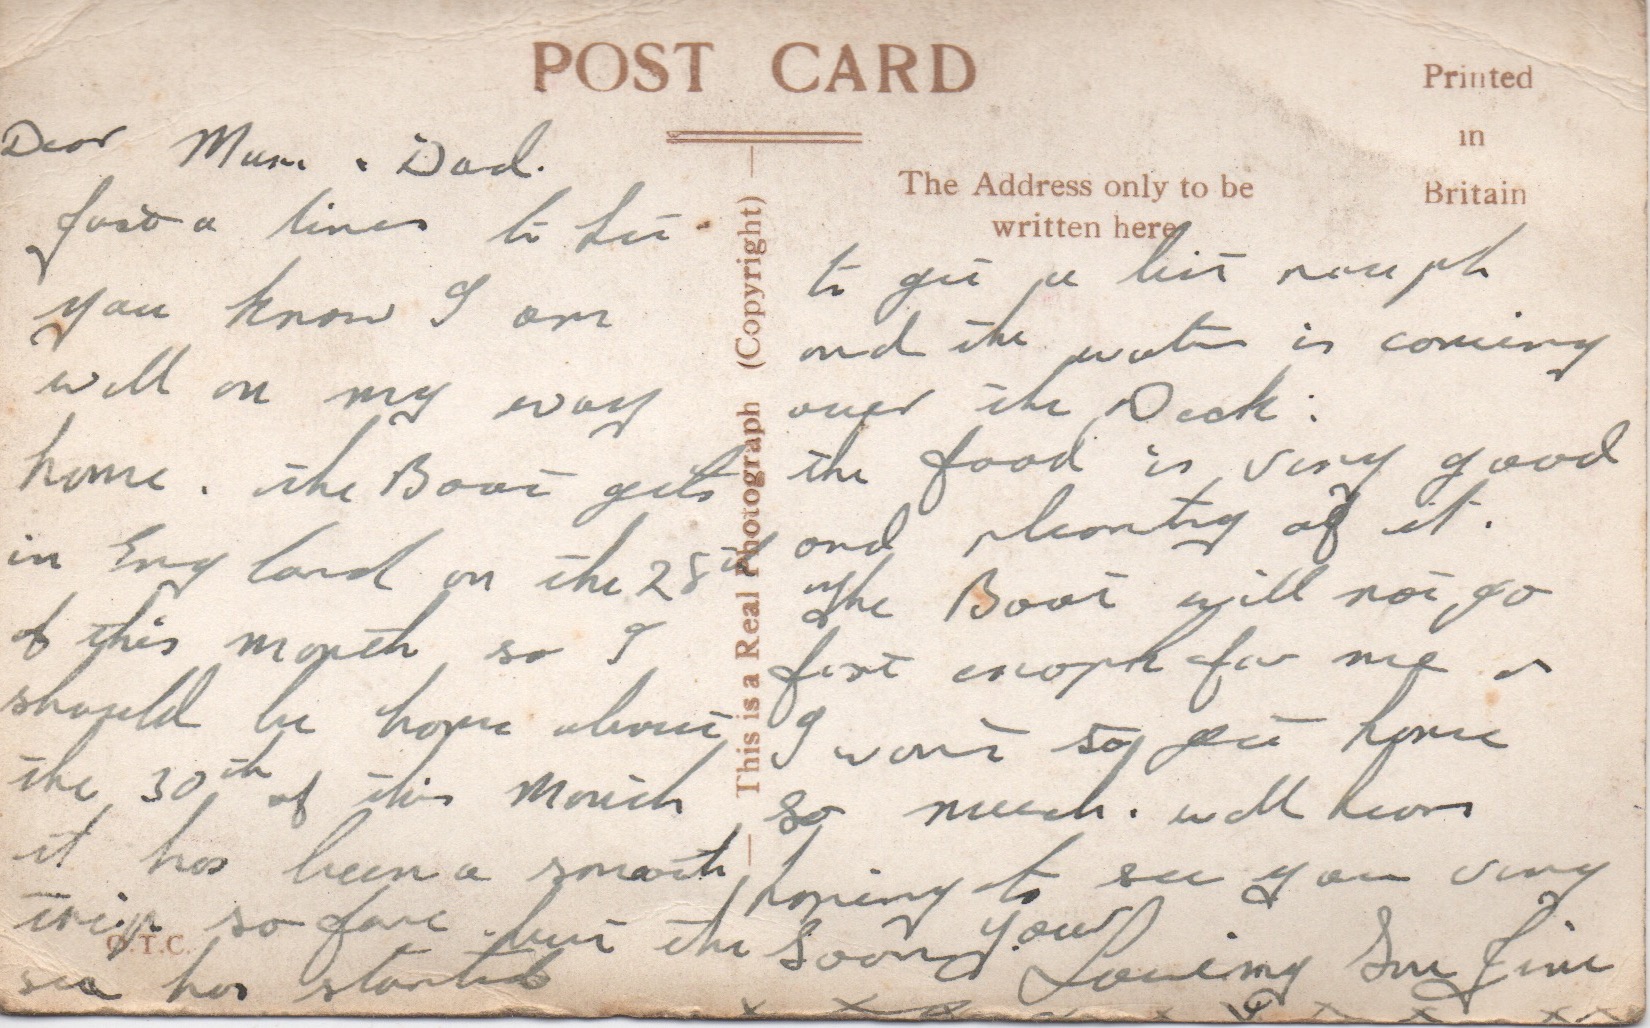 POST CARD
Printed
in
Britain
The Address only to be
written here
This is a Real Photograph (Copyright)
O.T.C.
Dear Mum & Dad.
Just a lines to let
you know I am
well on my way
home. the Boat gets
in England on the 28th
of this month so I
should be home about
the 30th of this Month
it has been a smooth
trip so fare but the
sea has started
to get a bit rough
and the water is coming
over the Deck.
the food is very good
and plenty of it.
the Boat will not go
fast enoph for me
I want to get home
so much. well
hoping to see you very
soon your
Loveing Son Jim
x x x x x x x x